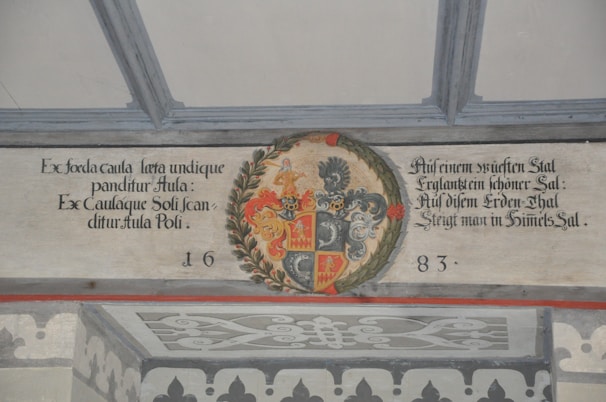 Ex fœda caula læta undique
panditur Aula:
Ex Caulaque Soli scan-
ditur Aula Poli.
Aus einem wüesten Stal
Erglantzt ein schöner Sal:
Aus disem Erden-Thal
Steigt man in Him̄els Sal.
16
83.